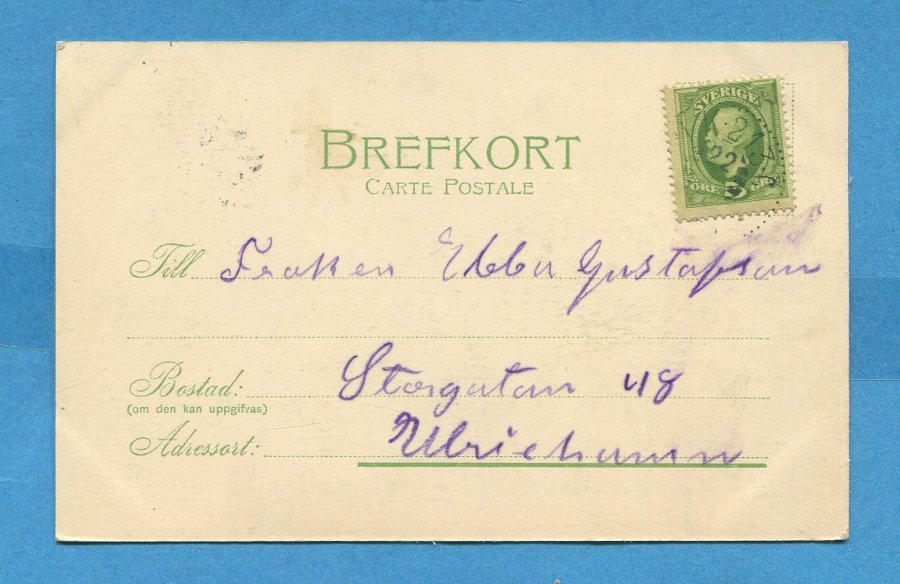 BREFKORT
CARTE POSTALE
SVERIGE
5
ÖRE
Till Fraken Ebba Gustafson
Bostad: Storgatan 48
(om den kan uppgifvas)
Adressort: Ulricehamn